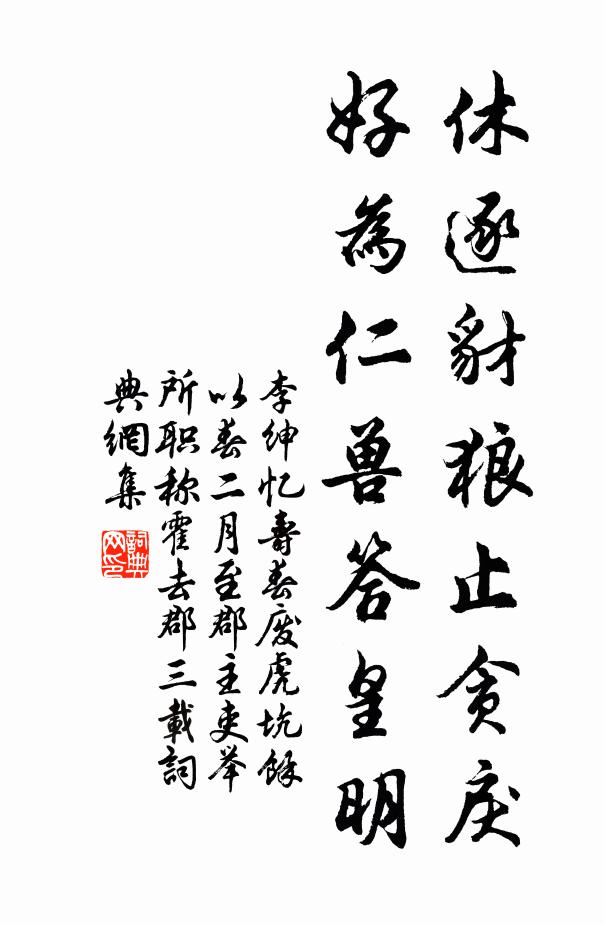 休逐豺狼止贪戾
好為仁兽答皇明
李绅忆壽春废虎坑餘
以春二月至郡主吏举
所职称霍去郡三載詞
典網集
詞典网印